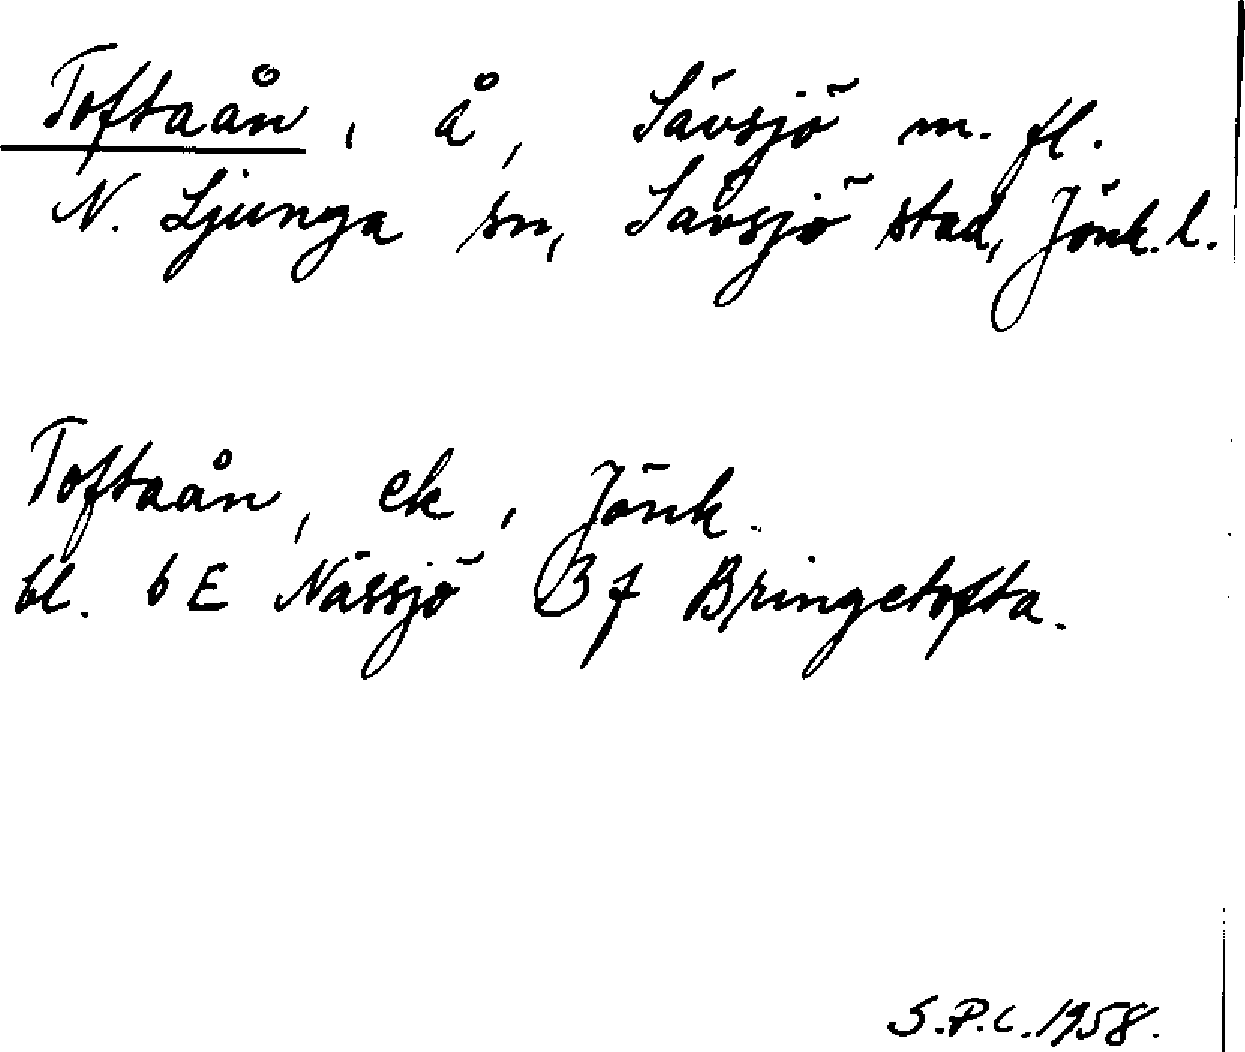 Toftaån, å, Sävsjö m. fl.
N. Ljunga sn, Sävsjö stad, Jönk. l.
Toftaån, ek, Jönk.
bl. 6 E Nässjö B f Bringetofta.
S.P.C. 1958.